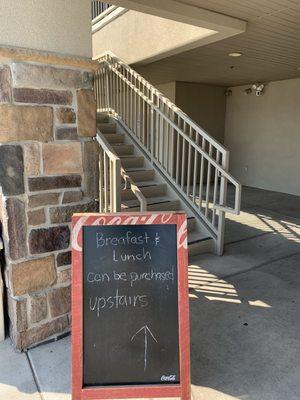 Coca-Cola
Breafast &
Lunch
can be purchased
upstairs
Coca-Cola